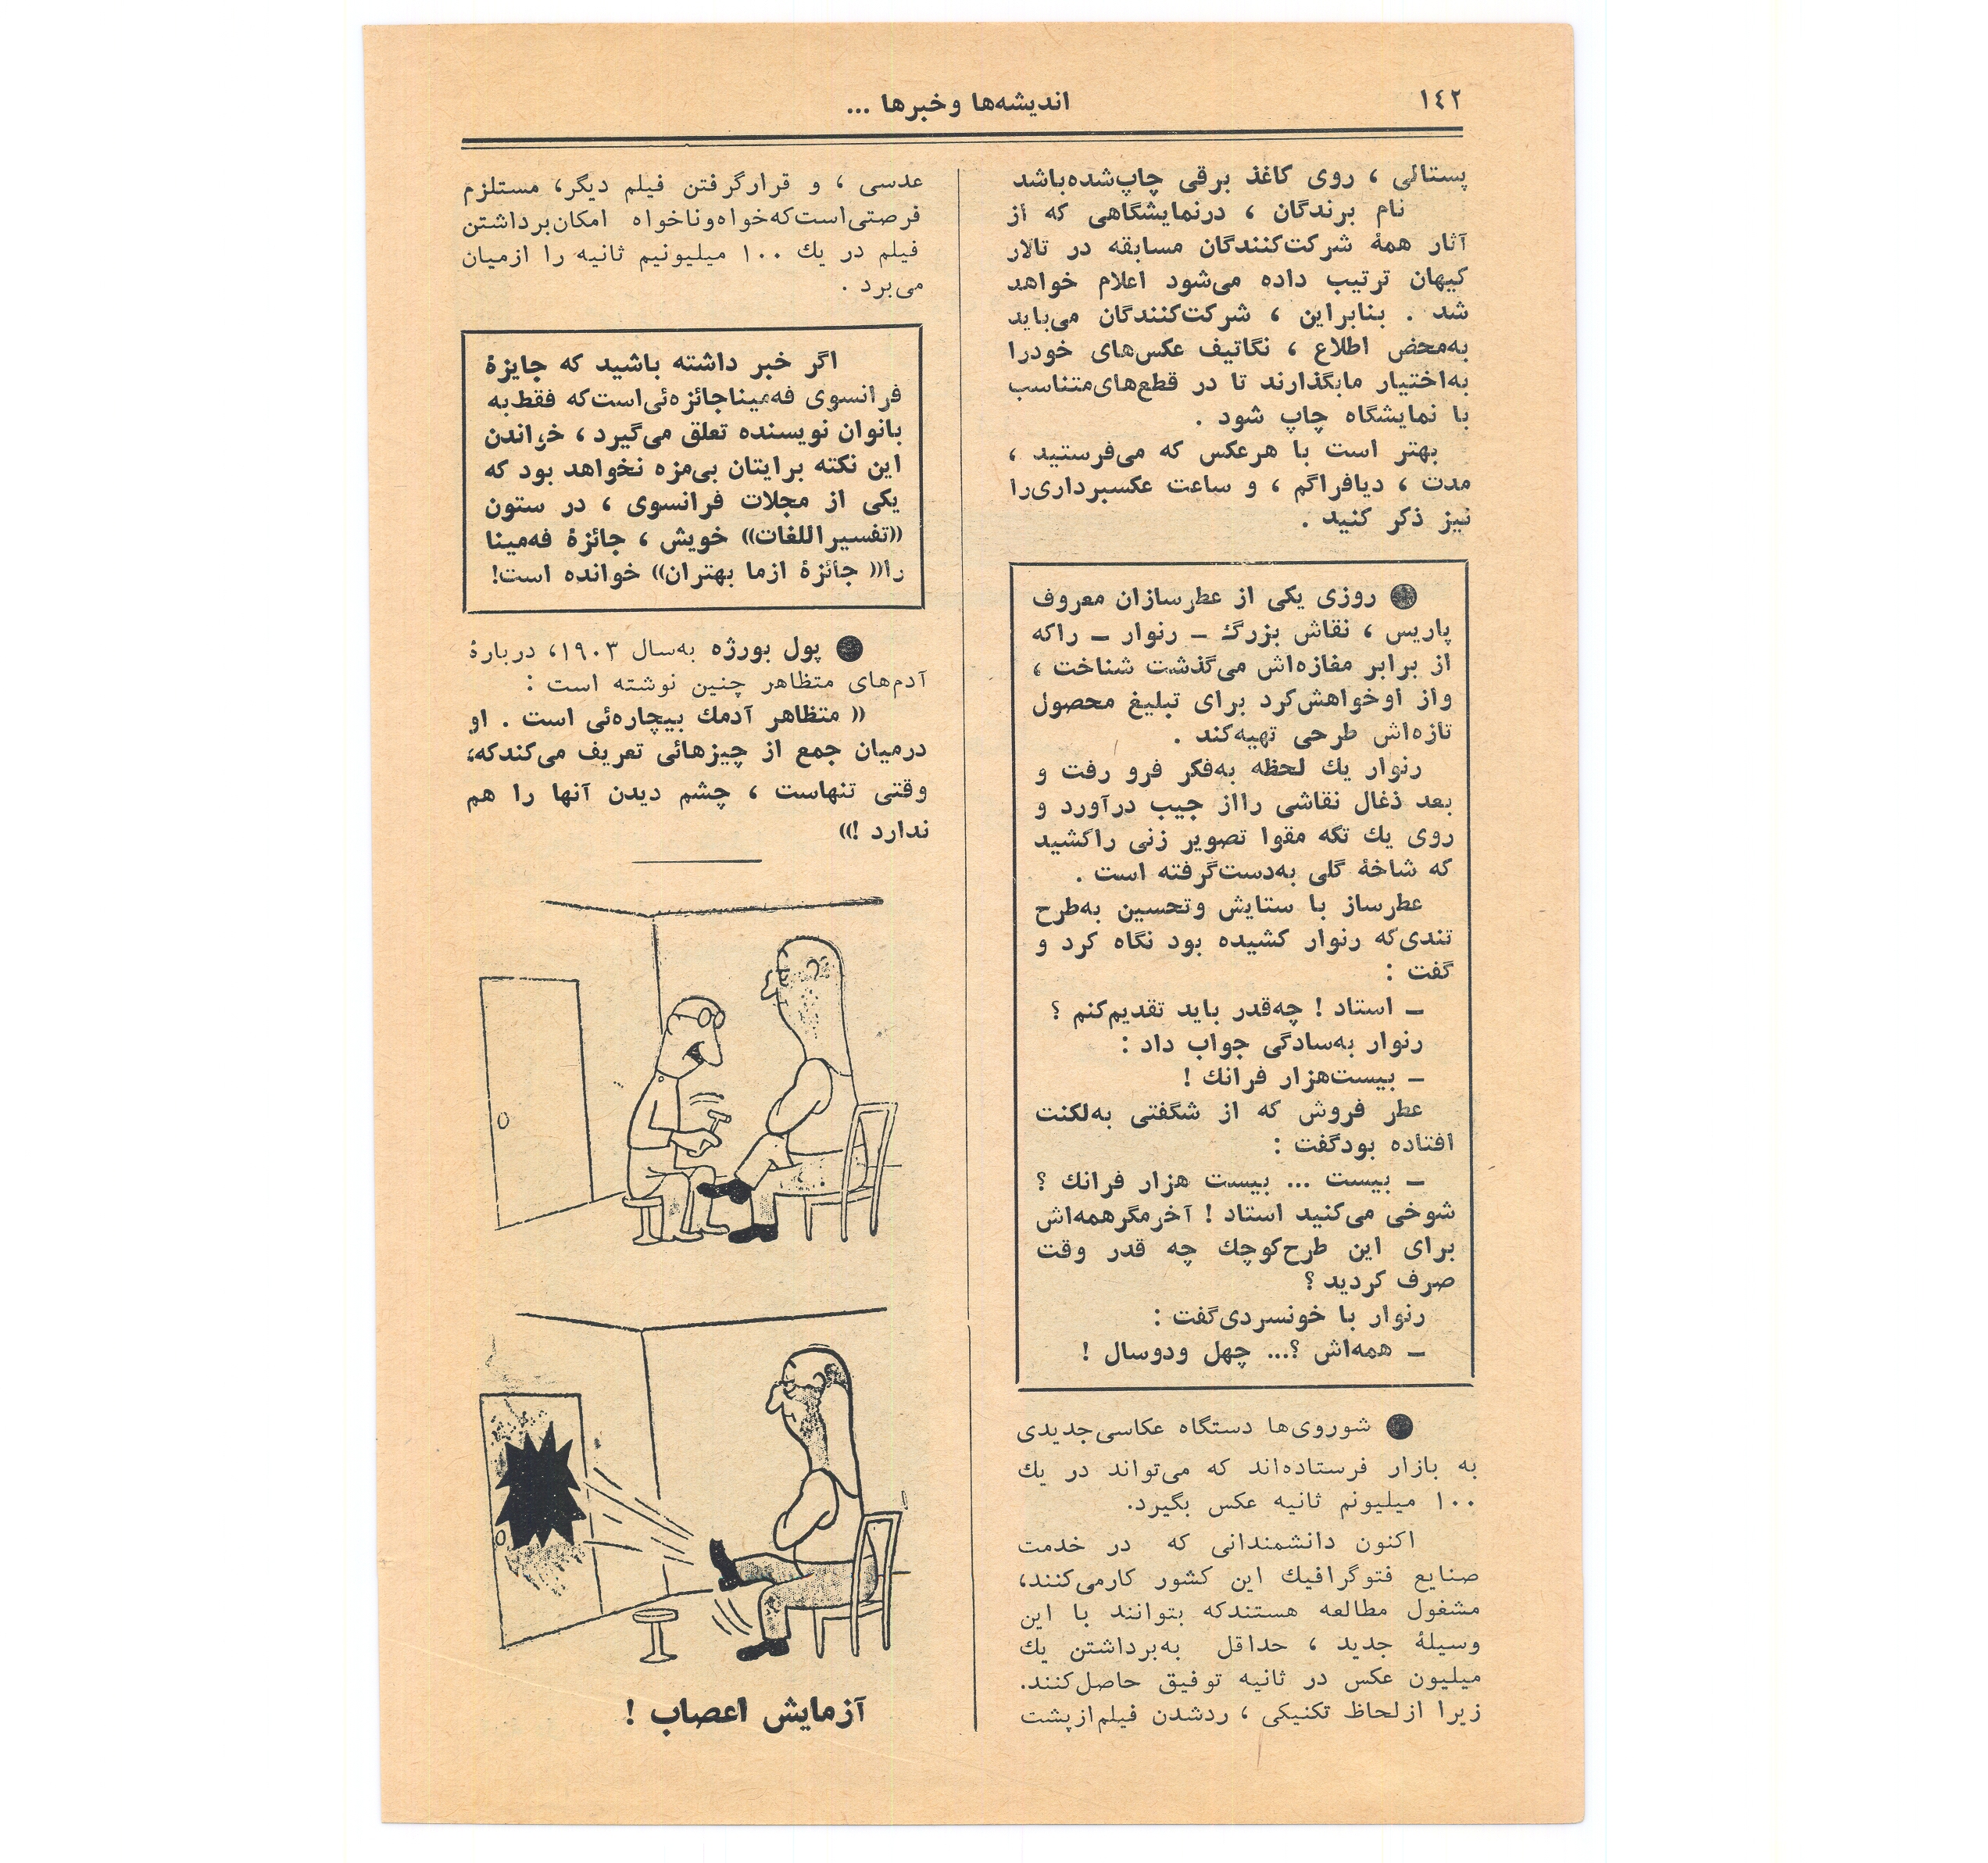 ۱٤۲
اندیشه‌ها و خبرها ...
پستالی ، روی کاغذ برقی چاپ‌شده‌باشد
نام برندگان ، درنمایشگاهی که از
آثار همهٔ شرکت‌کنندگان مسابقه در تالار
کیهان ترتیب داده می‌شود اعلام خواهد
شد . بنابراین ، شرکت‌کنندگان می‌باید
به‌محض اطلاع ، نگاتیف عکس‌های خودرا
به‌اختیار مابگذارند تا در قطع‌های‌متناسب
با نمایشگاه چاپ شود .
بهتر است با هرعکس که می‌فرستید ،
مدت ، دیافراگم ، و ساعت عکسبرداری‌را
نیز ذکر کنید .
● روزی یکی از عطرسازان معروف
پاریس ، نقاش بزرگ ـ رنوار ـ راکه
از برابر مغازه‌اش می‌گذشت شناخت ،
واز اوخواهش‌کرد برای تبلیغ محصول
تازه‌اش طرحی تهیه‌کند .
رنوار یك لحظه به‌فکر فرو رفت و
بعد ذغال نقاشی رااز جیب درآورد و
روی یك تکه مقوا تصویر زنی راکشید
که شاخهٔ گلی به‌دست‌گرفته است .
عطرساز با ستایش وتحسین به‌طرح
تندی‌که رنوار کشیده بود نگاه کرد و
گفت :
ـ استاد ! چه‌قدر باید تقدیم‌کنم ؟
رنوار به‌سادگی جواب داد :
ـ بیست‌هزار فرانك !
عطر فروش که از شگفتی به‌لکنت
افتاده بودگفت :
ـ بیست ... بیست هزار فرانك ؟
شوخی می‌کنید استاد ! آخرمگرهمه‌اش
برای این طرح‌کوچك چه قدر وقت
صرف کردید ؟
رنوار با خونسردی‌گفت :
ـ همه‌اش ؟... چهل ودوسال !
● شوروی‌ها دستگاه عکاسی‌جدیدی
به بازار فرستاده‌اند که می‌تواند در یك
۱۰۰ میلیونم ثانیه عکس بگیرد.
اکنون دانشمندانی که در خدمت
صنایع فتوگرافیك این کشور کارمی‌کنند،
مشغول مطالعه هستندکه بتوانند با این
وسیلهٔ جدید ، حداقل به‌برداشتن یك
میلیون عکس در ثانیه توفیق حاصل‌کنند.
زیرا ازلحاظ تکنیکی ، ردشدن فیلم‌ازپشت
عدسی ، و قرارگرفتن فیلم دیگر، مستلزم
فرصتی‌است‌که‌خواه‌وناخواه امکان‌برداشتن
فیلم در یك ۱۰۰ میلیونیم ثانیه را ازمیان
می‌برد .
اگر خبر داشته باشید که جایزهٔ
فرانسوی فه‌میناجائزه‌ئی‌است‌که فقط‌به
بانوان نویسنده تعلق می‌گیرد ، خواندن
این نکته برایتان بی‌مزه نخواهد بود که
یکی از مجلات فرانسوی ، در ستون
«تفسیراللغات» خویش ، جائزهٔ فه‌مینا
را« جائزهٔ ازما بهتران» خوانده است!
● پول بورژه به‌سال ۱۹۰۳، دربارهٔ
آدم‌های متظاهر چنین نوشته است :
« متظاهر آدمك بیچاره‌ئی است . او
درمیان جمع از چیزهائی تعریف می‌کندکه،
وقتی تنهاست ، چشم دیدن آنها را هم
ندارد !»
آزمایش اعصاب !